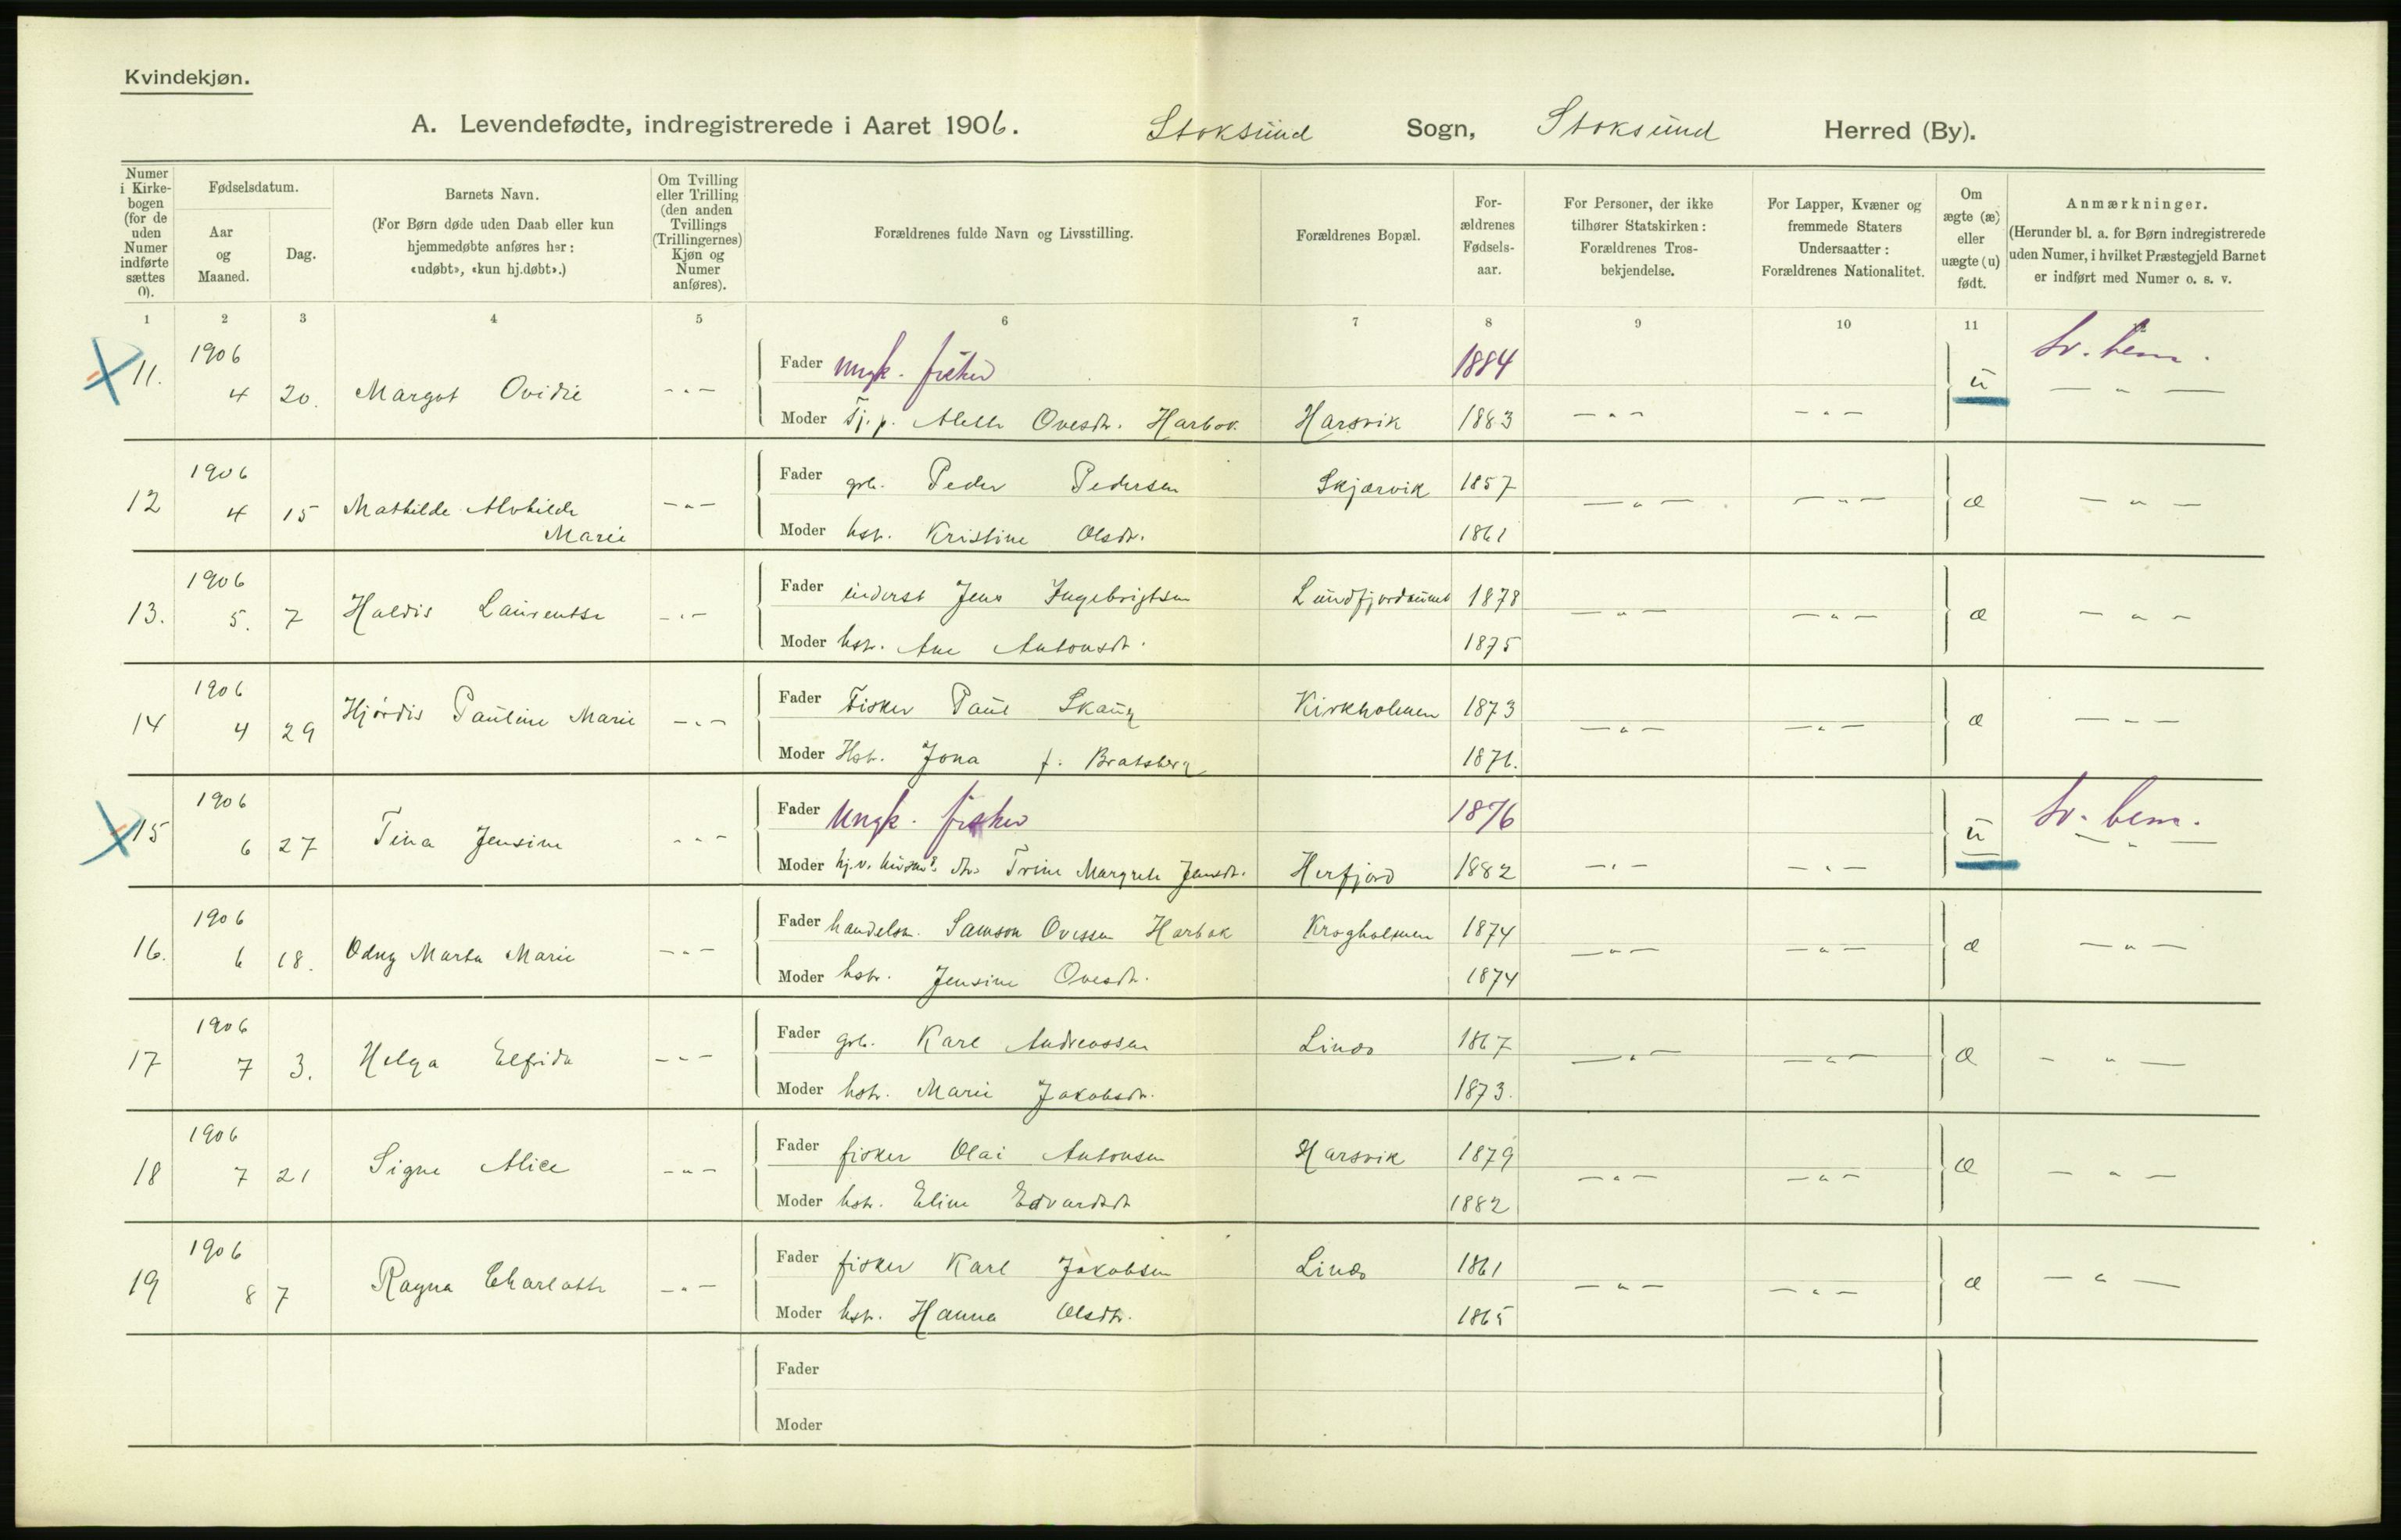 Kvindekjøn.
A. Levendefødte, indregistrerede i Aaret 1906. Stoksund Sogn, Stoksund Herred (By).
Numer i Kirkebogen (for de uden Numer indførte sættes 0).
Fødselsdatum.
Aar og Maaned.
Dag.
Barnets Navn.
(For Børn døde uden Daab eller kun hjemmedøbte anføres her: «udøbt», «kun hj.døbt».)
Om Tvilling eller Trilling (den anden Tvillings (Trillingernes) Kjøn og Numer anføres).
Forældrenes fulde Navn og Livsstilling.
Forældrenes Bopæl.
Forældrenes Fødselsaar.
For Personer, der ikke tilhører Statskirken: Forældrenes Trosbekjendelse.
For Lapper, Kvæner og fremmede Staters Undersaatter: Forældrenes Nationalitet.
Om ægte (æ) eller uægte (u) født.
Anmærkninger.
(Herunder bl. a. for Børn indregistrerede uden Numer, i hvilket Præstegjeld Barnet er indført med Numer o. s. v.
1 2 3 4 5 6 7 8 9 10 11
11. 1906 4 20. Margot Ovidie -"- Fader Ungk. fisker 1884 u sv. bem.
Moder Tj.p. Alette Ovesdtr. Harbak Harsvik 1883 -"- -"- -"-
12 1906 4 15 Mathilde Alvhilde Marie -"- Fader grb. Peder Pedersen Skjærvik 1857 -"- -"- æ -"-
Moder hst. Kristine Olsdtr. 1861
13. 1906 5. 7 Haldis Laurentse -"- Fader inderst Jens Ingebrigtsen Lundfjordsundet 1878 -"- -"- æ -"-
Moder hst. Ane Antonsdtr. 1875
14 1906 4 29 Hjørdis Pauline Marie -"- Fader Fisker Paul Skaug Kirkholmen 1873 -"- -"- æ -"-
Moder Hst. Jona f. Bratsberg 1871.
15 1906 6 27 Tina Jensine -"- Fader Ungk. fisker 1876 u sv. bem.
Moder hj.v. husmds dtr Trine Margrete Jensdtr. Herfjord 1882 -"- -"- -"-
16. 1906 6 18. Odny Marta Marie -"- Fader handelsm. Samson Ovessen Harbak Krogholmen 1874 -"- -"- æ -"-
Moder hst. Jensine Ovesdtr. 1874
17 1906 7 3. Helga Elfrida -"- Fader grb. Karl Andreassen Linæs 1867 -"- -"- æ -"-
Moder hst. Marie Jakobsdtr. 1873.
18 1906 7 21 Signe Alice -"- Fader fisker Olai Antonsen Harsvik 1879 -"- -"- æ -"-
Moder hst. Eline Edvardsdtr 1882
19 1906 8 7 Ragna Charlotte -"- Fader fisker Karl Jakobsen Linæs 1861 -"- -"- æ -"-
Moder hst. Hanna Olsdtr. 1865
Fader
Moder